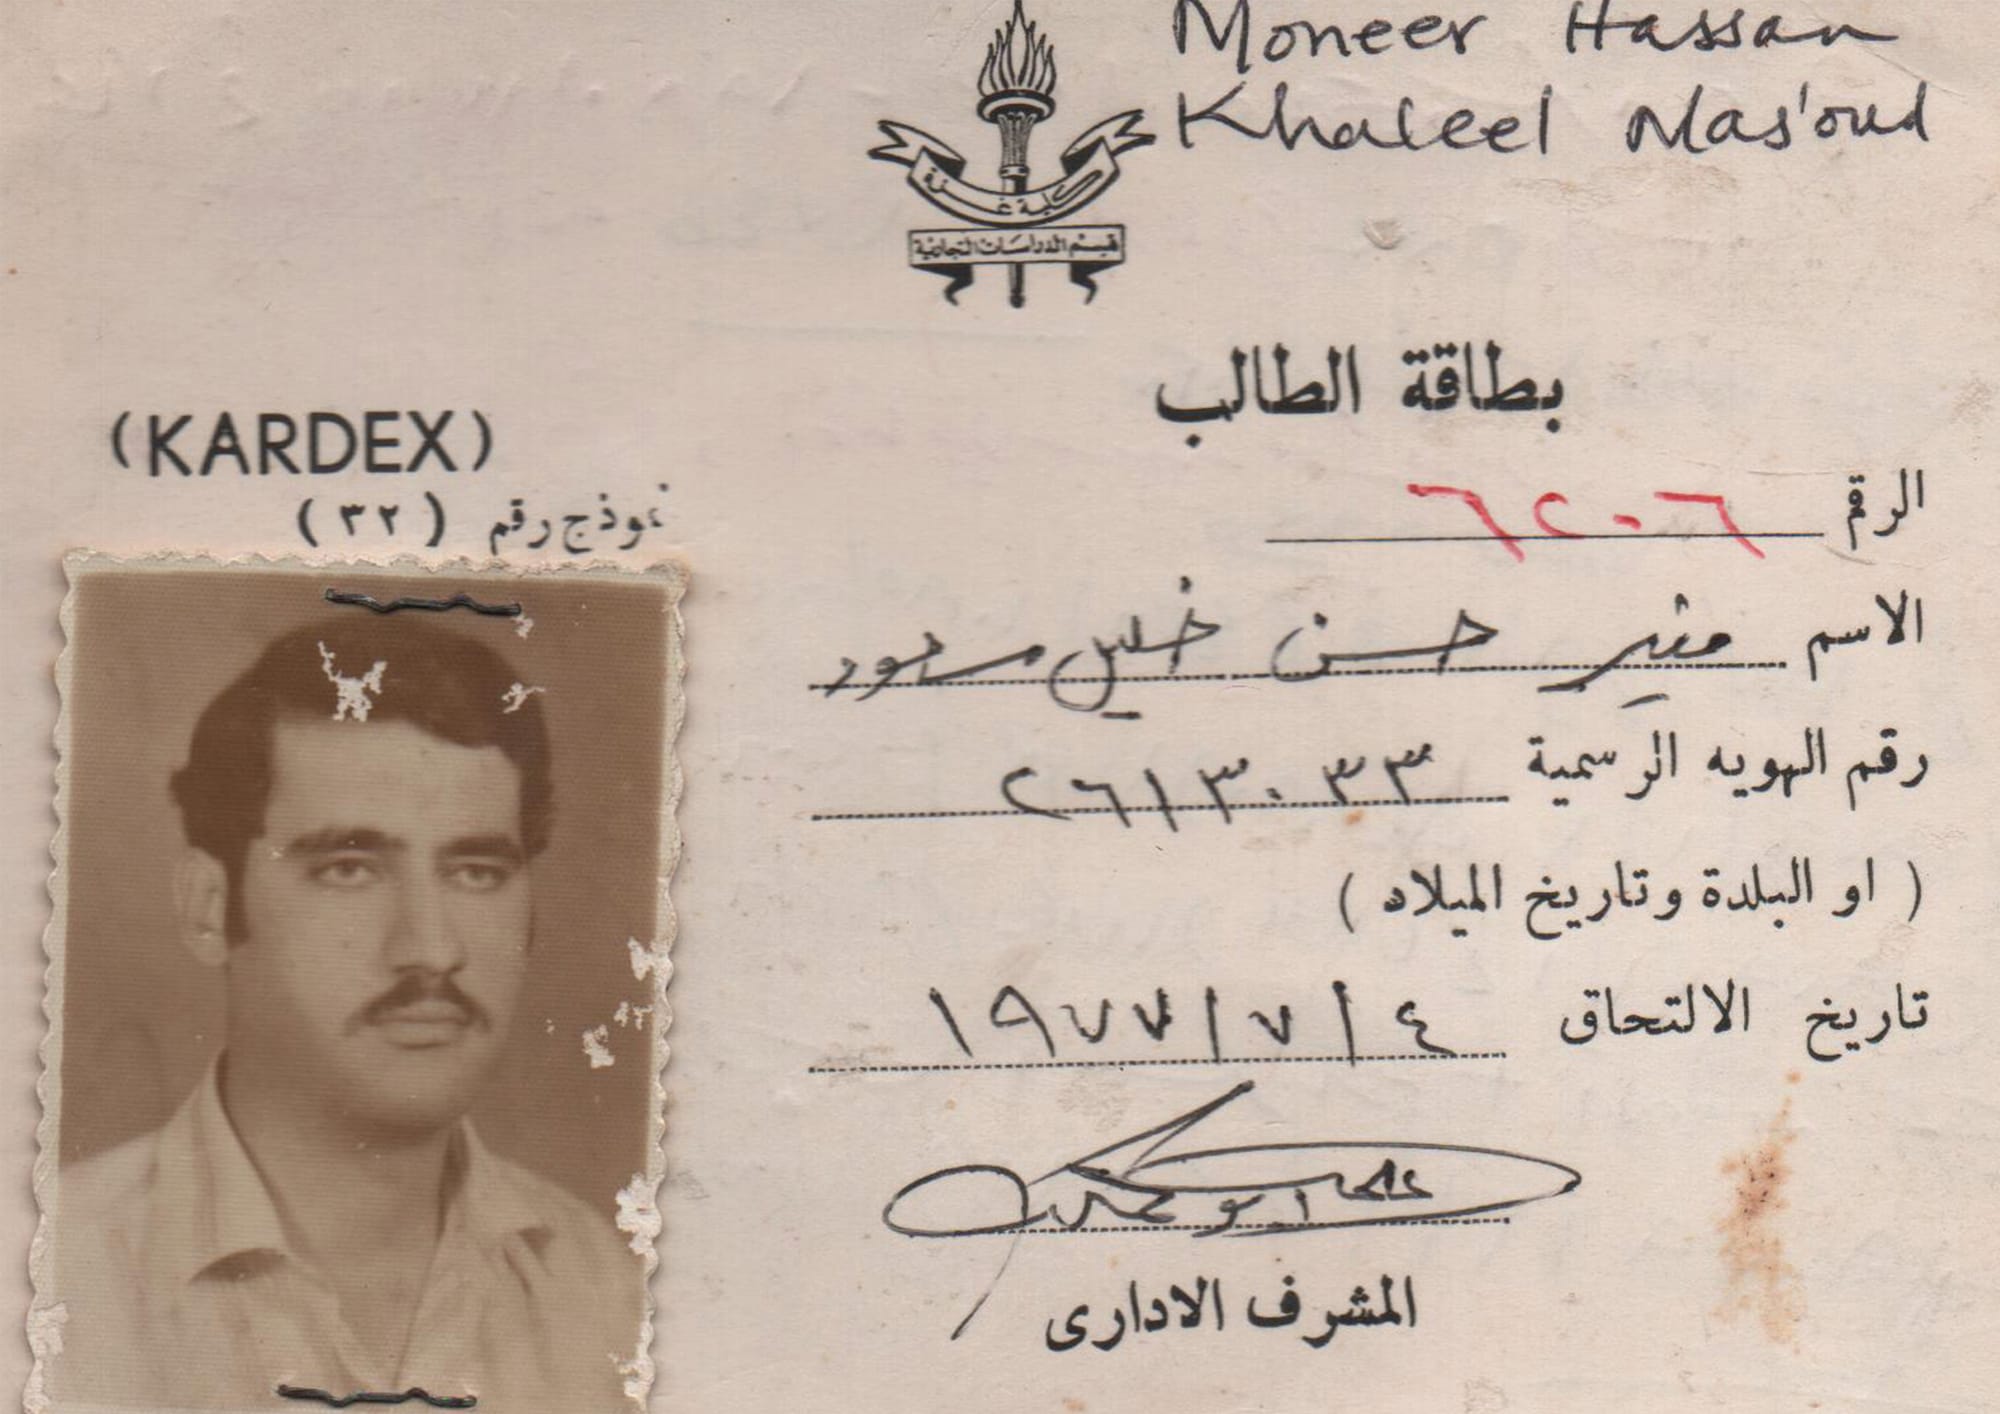 Moneer Hassan
Khaleel Mas'oud
كلية غزة
قسم الدراسات التجارية
بطاقة الطالب
(KARDEX)
نموذج رقم (٣٢)
الرقم ٦٢٠٦
الاسم منير حسن خليل مسعود
رقم الهويه الرسمية ٢٦١٣٠٣٣
(او البلدة وتاريخ الميلاد)
تاريخ الالتحاق ٤/٧/١٩٧٧
المشرف الادارى